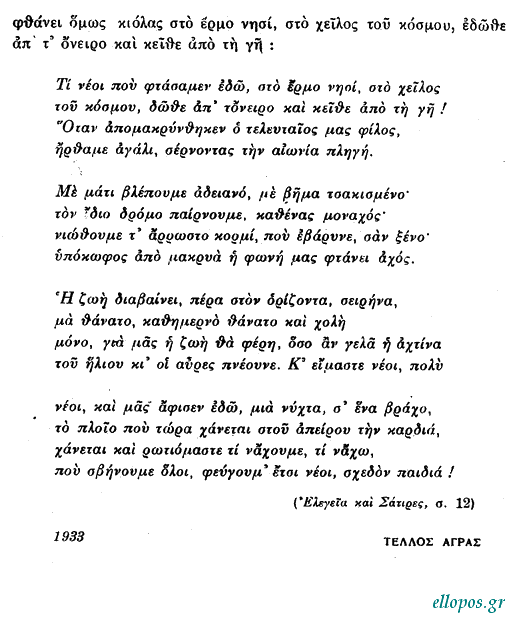 φθάνει ὅμως κιόλας στὸ ἔρμο νησί, στὸ χεῖλος τοῦ κόσμου, ἐδῶθε
ἀπ᾽ τ᾽ ὄνειρο καὶ κεῖθε ἀπὸ τὴ γῆ :
Τί νέοι ποὺ φτάσαμεν ἐδῶ, στὸ ἔρμο νησί, στὸ χεῖλος
τοῦ κόσμου, δῶθε ἀπ᾽ τὄνειρο καὶ κεῖθε ἀπὸ τὴ γῆ !
Ὅταν ἀπομακρύνθηκεν ὁ τελευταῖος μας φίλος,
ἤρθαμε ἀγάλι, σέρνοντας τὴν αἰωνία πληγή.
Μὲ μάτι βλέπουμε ἀδειανό, μὲ βῆμα τσακισμένο·
τὸν ἴδιο δρόμο παίρνουμε, καθένας μοναχός·
νιώθουμε τ᾽ ἄρρωστο κορμί, ποὺ ἐβάρυνε, σὰν ξένο·
ὑπόκωφος ἀπὸ μακρυὰ ἡ φωνή μας φτάνει ἀχός.
Ἡ ζωὴ διαβαίνει, πέρα στὸν ὁρίζοντα, σειρήνα,
μὰ θάνατο, καθημερνὸ θάνατο καὶ χολὴ
μόνο, γιὰ μᾶς ἡ ζωὴ θὰ φέρη, ὅσο ἂν γελᾶ ἡ ἀχτίνα
τοῦ ἥλιου κι᾽ οἱ αὖρες πνέουνε. Κ᾽ εἴμαστε νέοι, πολὺ
νέοι, καὶ μᾶς ἄφισεν ἐδῶ, μιὰ νύχτα, σ᾽ ἕνα βράχο,
τὸ πλοῖο ποὺ τώρα χάνεται στοῦ ἀπείρου τὴν καρδιά,
χάνεται καὶ ρωτιόμαστε τί νἄχουμε, τί νἄχω,
ποὺ σβήνουμε ὅλοι, φεύγουμ᾽ ἔτσι νέοι, σχεδὸν παιδιά !
(Ἐλεγεῖα καὶ Σάτιρες, σ. 12)
1933 ΤΕΛΛΟΣ ΑΓΡΑΣ
ellopos.gr